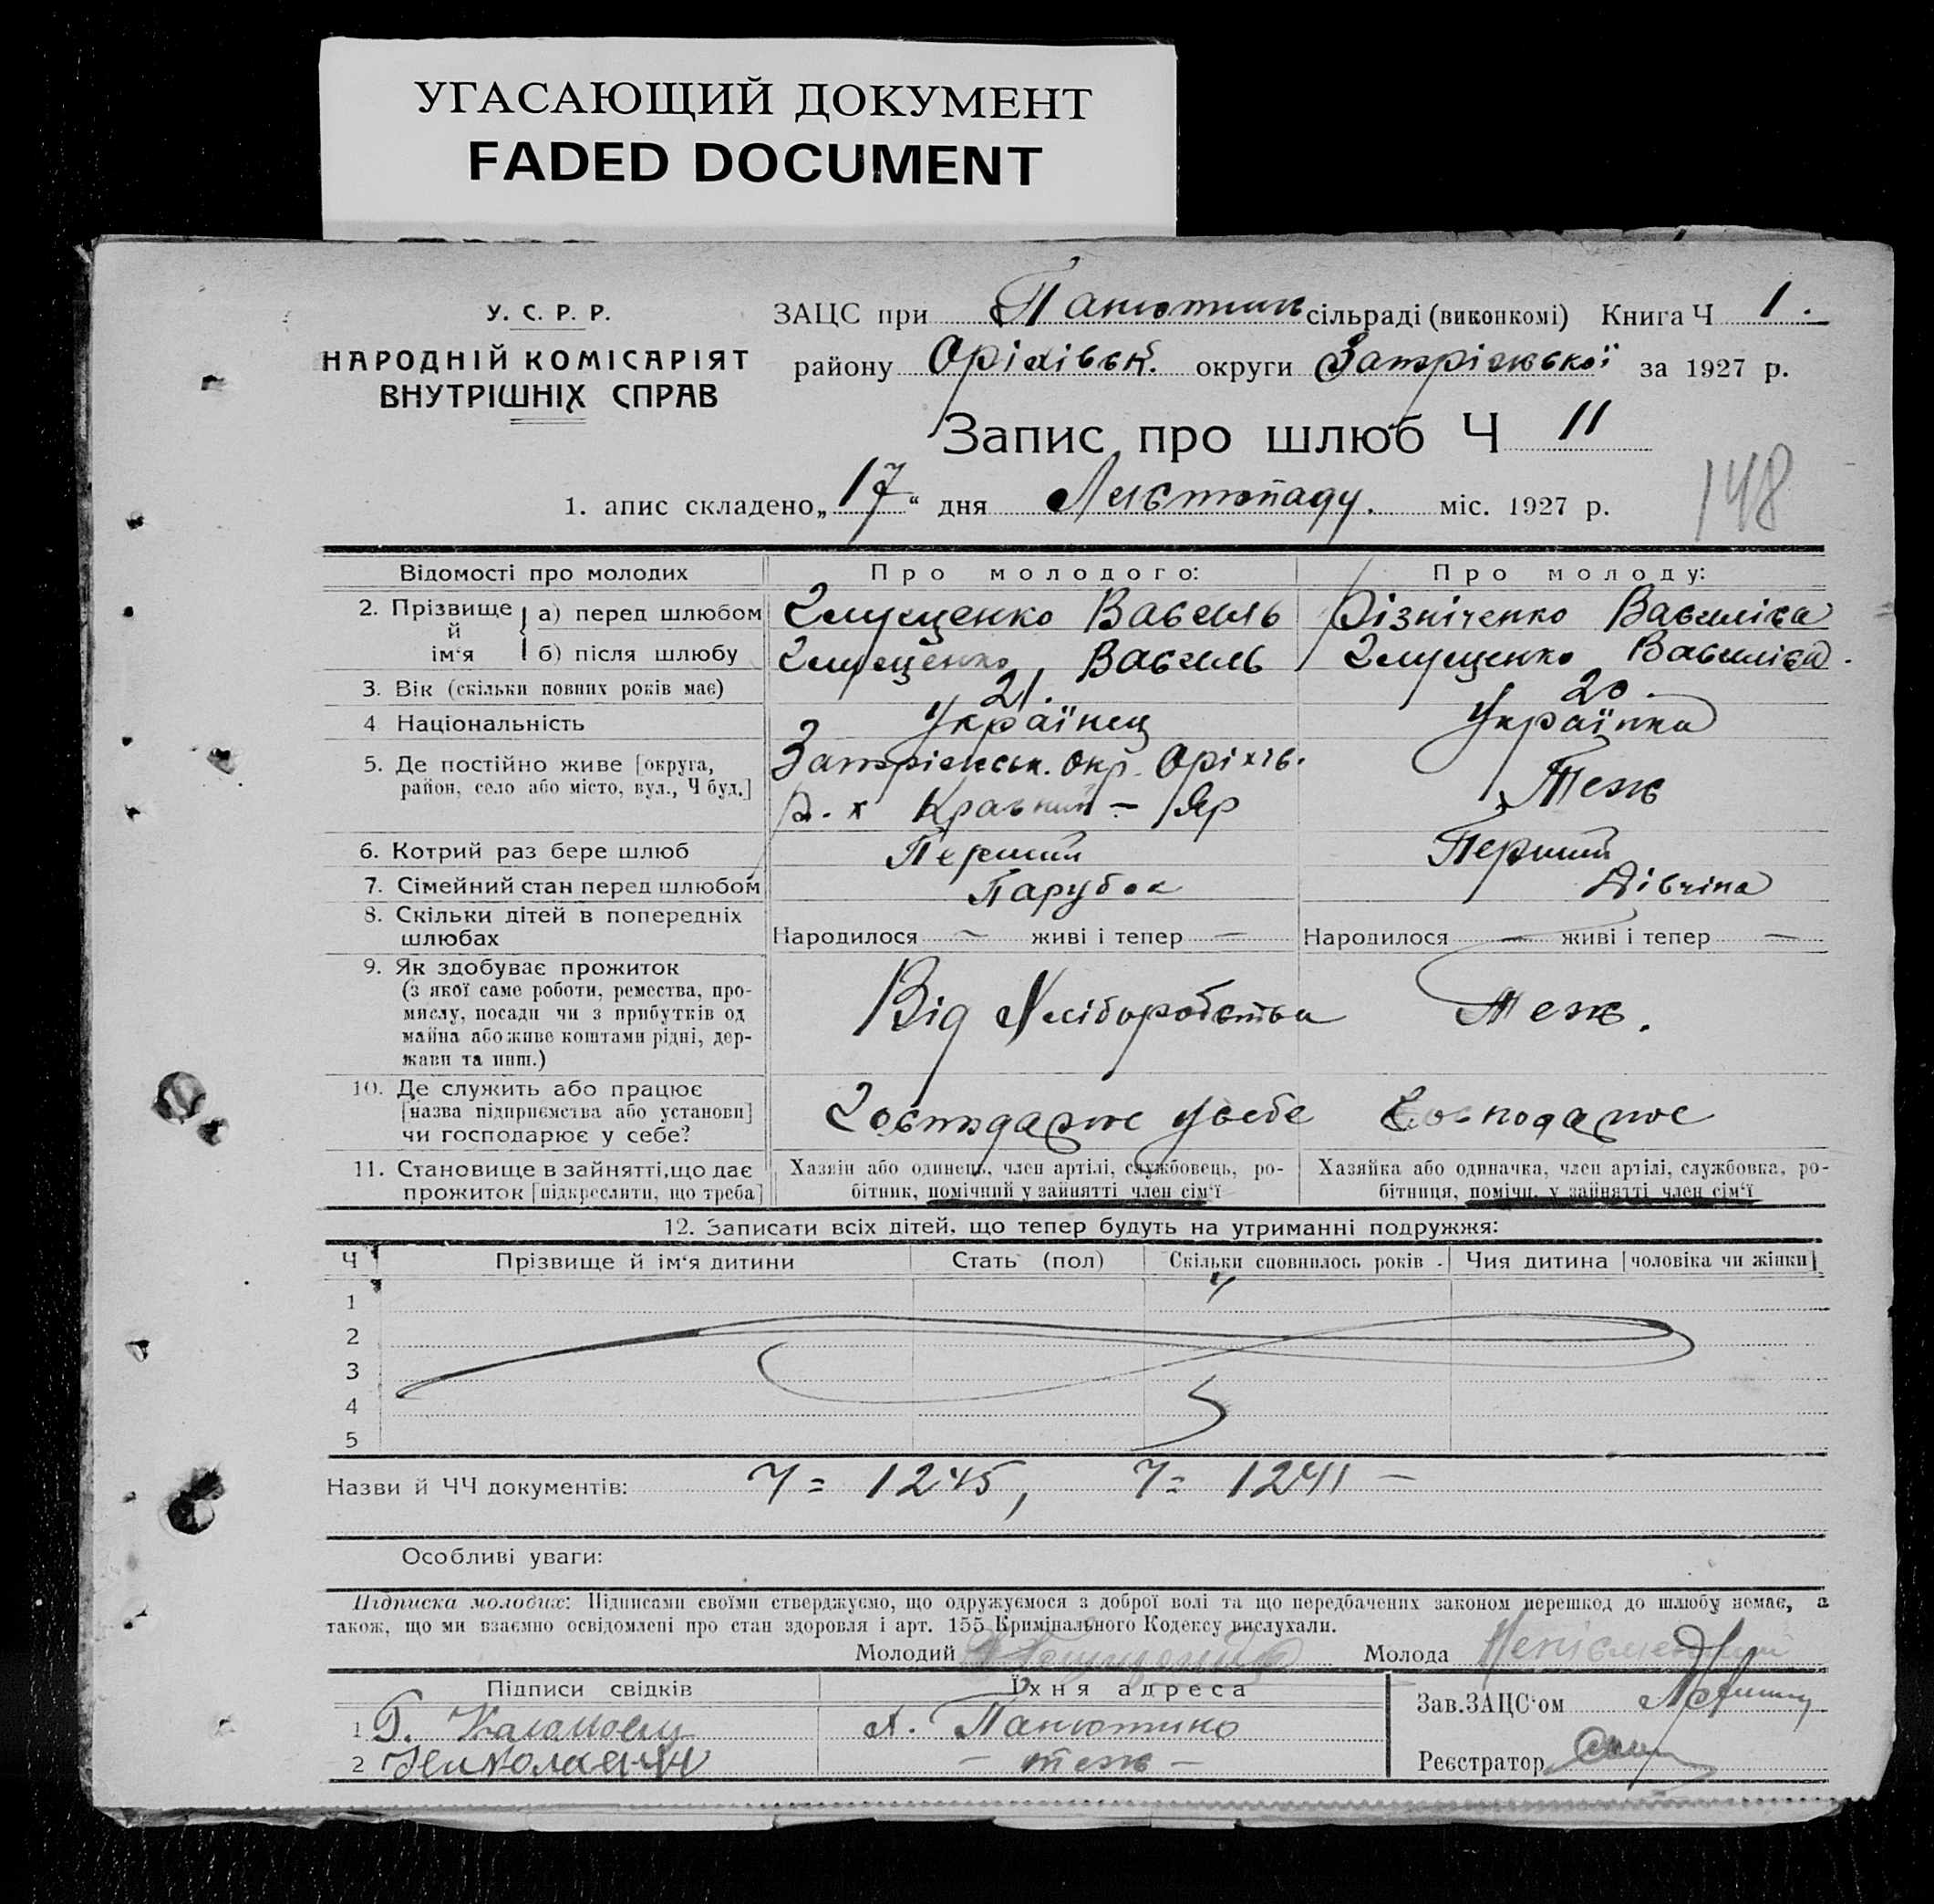 УГАСАЮЩИЙ ДОКУМЕНТ
FADED DOCUMENT
У. С. Р. Р.
НАРОДНІЙ КОМІСАРІЯТ
ВНУТРІШНІХ СПРАВ
ЗАЦС при Панютин сільраді (виконкомі) Книга Ч 1.
району Оріхівськ. округи Запоріжської за 1927 р.
Запис про шлюб Ч 11
148
1. апис складено „17“ дня Листопаду. міс. 1927 р.
Відомості про молодих Про молодого: Про молоду:
2. Прізвище й ім‘я
а) перед шлюбом Глущенко Василь Різніченко Василіса
б) після шлюбу Глущенко Василь Глущенко Василіса.
3. Вік (скільки повних років має) 21. 20.
4 Національність Українец Українка
5. Де постійно живе [округа, Запоріжськ. Окр. Оріхів.
район, село або місто, вул., Ч буд.] Р. х Кравний – Яр Теж
6. Котрий раз бере шлюб Перший Перший
7. Сімейний стан перед шлюбом Парубок Дівчіна
8. Скільки дітей в попередніх
шлюбах Народилося — живі і тепер — Народилося — живі і тепер —
9. Як здобуває прожиток
(з якої саме роботи, ремества, про-
мислу, посади чи з прибутків од Від Хліборобства теж.
майна або живе коштами рідні, дер-
жави та инш.)
10. Де служить або працює
[назва підприємства або установи] Господарює усебе Господарює
чи господарює у себе?
11. Становище в зайнятті, що дає Хазяін або одинець, член артілі, службовець, ро- Хазяйка або одиначка, член артілі, службовка, ро-
прожиток [підкреслити, що треба] бітник, помічний у зайнятті член сім‘ї бітниця, помічн. у зайнятті член сім‘ї
12. Записати всіх дітей, що тепер будуть на утриманні подружжя:
Ч Прізвище й ім‘я дитини Стать (пол) Скільки сповнилось років Чия дитина [чоловіка чи жінки]
1
2
3
4
5
Назви й ЧЧ документів: Ч = 1245, Ч = 1241 –
Особливі уваги:
Підписка молодих: Підписами своїми стверджуємо, що одружуємося з доброї волі та що передбачених законом перешкод до шлюбу немає, а
також, що ми взаємно освідомлені про стан здоровля і арт. 155 Кримінального Кодексу вислухали.
Молодий Глущенко Молода
Підписи свідків Їхня адреса Зав. ЗАЦС‘ом
1 Г. х. Панютино
2 – теж – Реєстратор